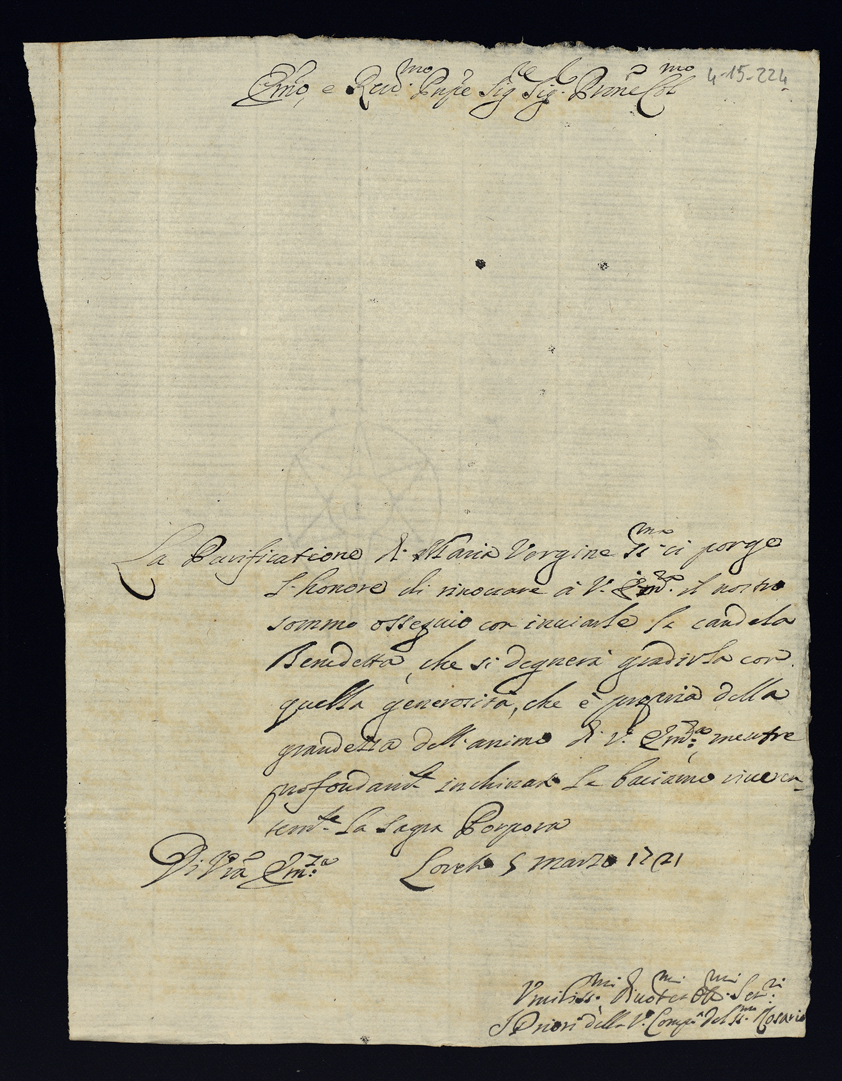 Emo, e Revd.mo Pnpe Sig.re Sig. Prone Col.mo
4-15-224
La Purificatione di Maria Vergine SS.ma ci porge
l'honore di rinovare à V. Em.za il nostro
sommo ossequio con inviarle la candela
Benedetta, che si degnerà gradirla con
quella generosità, che è propria della
grandezza dell'animo di V. Em.za, mentre
profondam.te inchinati le baciamo riveren-
tem.te la Sagra Porpora
Di Vra Em.za
Loreto 5 marzo 1721
Umiliss.mi Divotis.mi Obb.mi Ser.ri
I Priori della V. Comp.a del SS.mo Rosario